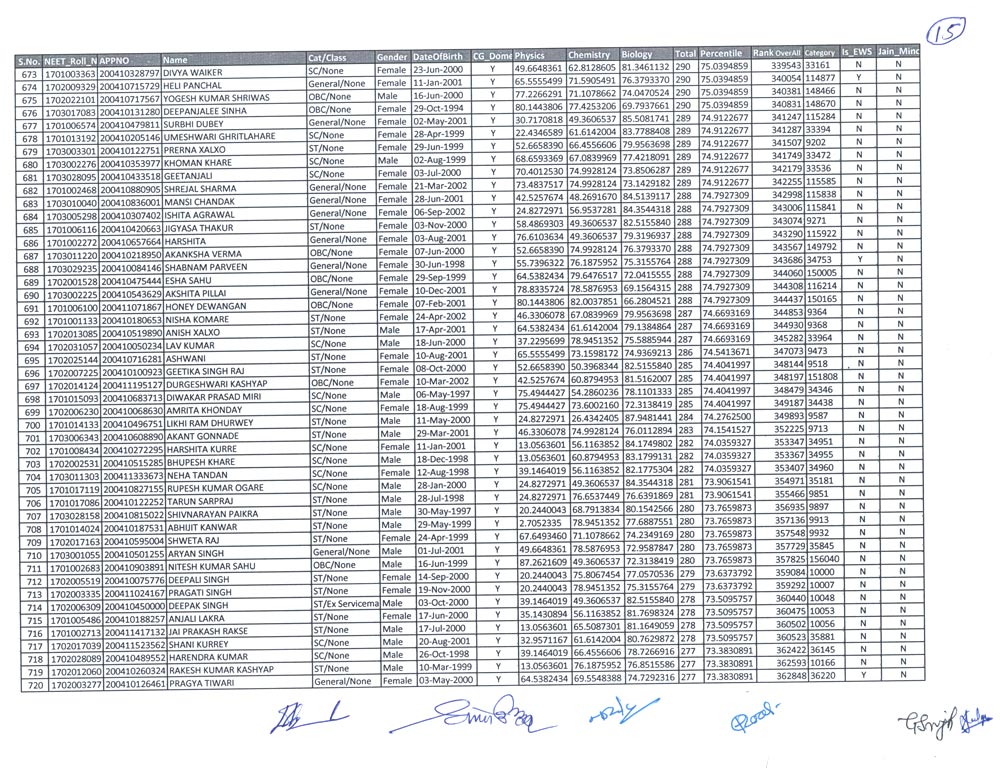 15
S.No. NEET_Roll_N APPNO Name Cat/Class Gender DateOfBirth CG_Dome Physics Chemistry Biology Total Percentile Rank OverAll Category Is_EWS Jain_Mino
673 1701003363 200410328797 DIVYA WAIKER SC/None Female 23-Jun-2000 Y 49.6648361 62.8128605 81.3461132 290 75.0394859 339543 33161 N N
674 1702009329 200410715729 HELI PANCHAL General/None Female 11-Jan-2001 Y 65.5555499 71.5905491 76.3793370 290 75.0394859 340054 114877 Y N
675 1702022101 200410717567 YOGESH KUMAR SHRIWAS OBC/None Male 16-Jun-2000 Y 77.2266291 71.1078662 74.0470524 290 75.0394859 340381 148466 N N
676 1703017083 200410131280 DEEPANJALEE SINHA OBC/None Female 29-Oct-1994 Y 80.1443806 77.4253206 69.7937661 290 75.0394859 340831 148670 N N
677 1701006574 200410479811 SURBHI DUBEY General/None Female 02-May-2001 Y 30.7170818 49.3606537 85.5081741 289 74.9122677 341247 115284 N N
678 1701013192 200410205146 UMESHWARI GHRITLAHARE SC/None Female 28-Apr-1999 Y 22.4346589 61.6142004 83.7788408 289 74.9122677 341287 33394 N N
679 1703003301 200410122751 PRERNA XALXO ST/None Female 29-Jun-1999 Y 52.6658390 66.4556606 79.9563698 289 74.9122677 341507 9202 N N
680 1703002276 200410353977 KHOMAN KHARE SC/None Male 02-Aug-1999 Y 68.6593369 67.0839969 77.4218091 289 74.9122677 341749 33472 N N
681 1703028095 200410433518 GEETANJALI SC/None Female 03-Jul-2000 Y 70.4012530 74.9928124 73.8506287 289 74.9122677 342179 33536 N N
682 1701002468 200410880905 SHREJAL SHARMA General/None Female 21-Mar-2002 Y 73.4837517 74.9928124 73.1429182 289 74.9122677 342255 115585 N N
683 1703010040 200410836001 MANSI CHANDAK General/None Female 28-Jun-2001 Y 42.5257674 48.2691670 84.5139117 288 74.7927309 342998 115838 N N
684 1703005298 200410307402 ISHITA AGRAWAL General/None Female 06-Sep-2002 Y 24.8272971 56.9537281 84.3544318 288 74.7927309 343006 115841 N N
685 1701006116 200410420663 JIGYASA THAKUR ST/None Female 03-Nov-2000 Y 58.4869303 49.3606537 82.5155840 288 74.7927309 343074 9271 N N
686 1701002272 200410657664 HARSHITA General/None Female 03-Aug-2001 Y 76.6103634 49.3606537 79.3196937 288 74.7927309 343290 115922 N N
687 1703011220 200410218950 AKANKSHA VERMA OBC/None Female 07-Jun-2000 Y 52.6658390 74.9928124 76.3793370 288 74.7927309 343567 149792 N N
688 1703029235 200410084146 SHABNAM PARVEEN General/None Female 30-Jun-1998 Y 55.7396322 76.1875952 75.3155764 288 74.7927309 343686 34753 Y N
689 1702001528 200410475444 ESHA SAHU OBC/None Female 29-Sep-1999 Y 64.5382434 79.6476517 72.0415555 288 74.7927309 344060 150005 N N
690 1703002225 200410543629 AKSHITA PILLAI General/None Female 10-Dec-2001 Y 78.8335724 78.5876953 69.1564315 288 74.7927309 344308 116214 N N
691 1701006100 200411071867 HONEY DEWANGAN OBC/None Female 07-Feb-2001 Y 80.1443806 82.0037851 66.2804521 288 74.7927309 344437 150165 N N
692 1701001133 200410180653 NISHA KOMARE ST/None Female 24-Apr-2002 Y 46.3306078 67.0839969 79.9563698 287 74.6693169 344853 9364 N N
693 1702013085 200410519890 ANISH XALXO ST/None Male 17-Apr-2001 Y 64.5382434 61.6142004 79.1384864 287 74.6693169 344930 9368 N N
694 1702031057 200410050234 LAV KUMAR SC/None Male 18-Jun-2000 Y 37.2295699 78.9451352 75.5885944 287 74.6693169 345282 33964 N N
695 1702025144 200410716281 ASHWANI ST/None Female 10-Aug-2001 Y 65.5555499 73.1598172 74.9369213 286 74.5413671 347073 9473 N N
696 1702007225 200410100923 GEETIKA SINGH RAJ ST/None Female 08-Oct-2000 Y 52.6658390 50.3968344 82.5155840 285 74.4041997 348144 9518 N N
697 1702014124 200411195127 DURGESHWARI KASHYAP OBC/None Female 10-Mar-2002 Y 42.5257674 60.8794953 81.5162007 285 74.4041997 348197 151808 N N
698 1701015093 200410683713 DIWAKAR PRASAD MIRI SC/None Male 06-May-1997 Y 75.4944427 54.2860236 78.1101333 285 74.4041997 348479 34346 N N
699 1702006230 200410068630 AMRITA KHONDAY SC/None Female 18-Aug-1999 Y 75.4944427 73.6002160 72.3138419 285 74.4041997 349187 34438 N N
700 1701014133 200410496751 LIKHI RAM DHURWEY ST/None Male 11-May-2000 Y 24.8272971 26.4342405 87.9481441 284 74.2762500 349893 9587 N N
701 1703006343 200410608890 AKANT GONNADE ST/None Male 29-Mar-2001 Y 46.3306078 74.9928124 76.0112894 283 74.1541527 352225 9713 N N
702 1701008434 200410272295 HARSHITA KURRE SC/None Female 11-Jan-2001 Y 13.0563601 56.1163852 84.1749802 282 74.0359327 353347 34951 N N
703 1702002531 200410515285 BHUPESH KHARE SC/None Male 18-Dec-1998 Y 13.0563601 60.8794953 83.1799131 282 74.0359327 353367 34955 N N
704 1703011303 200411333673 NEHA TANDAN SC/None Female 12-Aug-1998 Y 39.1464019 56.1163852 82.1775304 282 74.0359327 353407 34960 N N
705 1701017119 200410827155 RUPESH KUMAR OGARE SC/None Male 28-Jan-2000 Y 24.8272971 49.3606537 84.3544318 281 73.9061541 354971 35181 N N
706 1701017086 200410122252 TARUN SARPRAJ ST/None Male 28-Jul-1998 Y 24.8272971 76.6537449 76.6391869 281 73.9061541 355466 9851 N N
707 1703028158 200410815022 SHIVNARAYAN PAIKRA ST/None Male 30-May-1997 Y 20.2440043 68.7913834 80.1542566 280 73.7659873 356935 9897 N N
708 1701014024 200410187531 ABHIJIT KANWAR ST/None Male 29-May-1999 Y 2.7052335 78.9451352 77.6887551 280 73.7659873 357136 9913 N N
709 1702017163 200410595004 SHWETA RAJ ST/None Female 24-Apr-1999 Y 67.6493460 71.1078662 74.2349169 280 73.7659873 357548 9932 N N
710 1703001055 200410501255 ARYAN SINGH General/None Male 01-Jul-2001 Y 49.6648361 78.5876953 72.9587847 280 73.7659873 357729 35845 N N
711 1701002683 200410903891 NITESH KUMAR SAHU OBC/None Male 16-Jun-1999 Y 87.2621609 49.3606537 72.3138419 280 73.7659873 357825 156040 N N
712 1702005519 200410075776 DEEPALI SINGH ST/None Female 14-Sep-2000 Y 20.2440043 75.8067454 77.0570536 279 73.6373792 359084 10000 N N
713 1702003335 200411024167 PRAGATI SINGH ST/None Female 19-Nov-2000 Y 20.2440043 78.9451352 75.3155764 279 73.6373792 359292 10007 N N
714 1702006309 200410450000 DEEPAK SINGH ST/Ex Servicema Male 03-Oct-2000 Y 39.1464019 49.3606537 82.5155840 278 73.5095757 360440 10048 N N
715 1701005486 200410188257 ANJALI LAKRA ST/None Female 17-Jun-2000 Y 35.1430894 56.1163852 81.7698324 278 73.5095757 360475 10053 N N
716 1701002713 200411417132 JAI PRAKASH RAKSE ST/None Male 17-Jul-2000 Y 13.0563601 65.5087301 81.1649059 278 73.5095757 360502 10056 N N
717 1702017039 200411523562 SHANI KURREY SC/None Male 20-Aug-2001 Y 32.9571167 61.6142004 80.7629872 278 73.5095757 360523 35881 N N
718 1702028089 200410489552 HARENDRA KUMAR SC/None Male 26-Oct-1998 Y 39.1464019 66.4556606 78.7266916 277 73.3830891 362422 36145 N N
719 1702012060 200410260324 RAKESH KUMAR KASHYAP ST/None Male 10-Mar-1999 Y 13.0563601 76.1875952 76.8515586 277 73.3830891 362593 10166 N N
720 1702003277 200410126461 PRAGYA TIWARI General/None Female 03-May-2000 Y 64.5382434 69.5548388 74.7292316 277 73.3830891 362848 36220 Y N